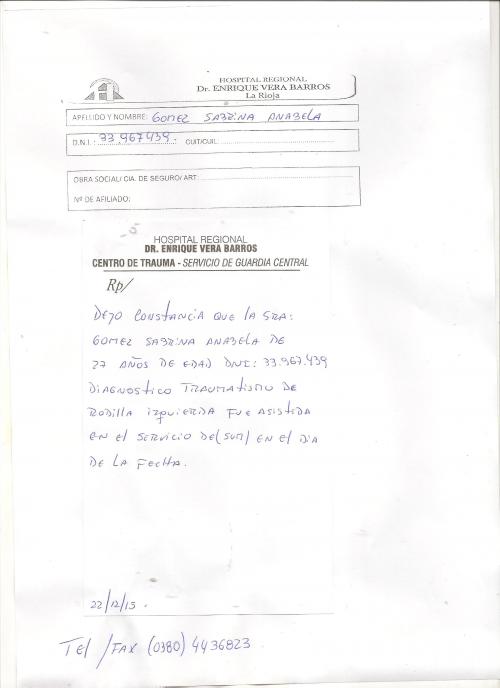 HOSPITAL REGIONAL
Dr. ENRIQUE VERA BARROS
La Rioja
APELLIDO Y NOMBRE: GOMEZ SABRINA ANABELA
D.N.I.: 33.967.439. CUIT/CUIL:
OBRA SOCIAL/ CIA. DE SEGURO/ ART:
Nº DE AFILIADO:
HOSPITAL REGIONAL
DR. ENRIQUE VERA BARROS
CENTRO DE TRAUMA - SERVICIO DE GUARDIA CENTRAL
Rp/
DEJO CONSTANCIA QUE LA SRA:
GOMEZ SABRINA ANABELA DE
27 AÑOS DE EDAD DNI: 33.967.439
DIAGNOSTICO TRAUMATISMO DE
RODILLA IZQUIERDA FUE ASISTIDA
EN EL SERVICIO DE (SUM) EN EL DIA
DE LA FECHA.
22/12/15.
TEl /FAX (0380) 4436823